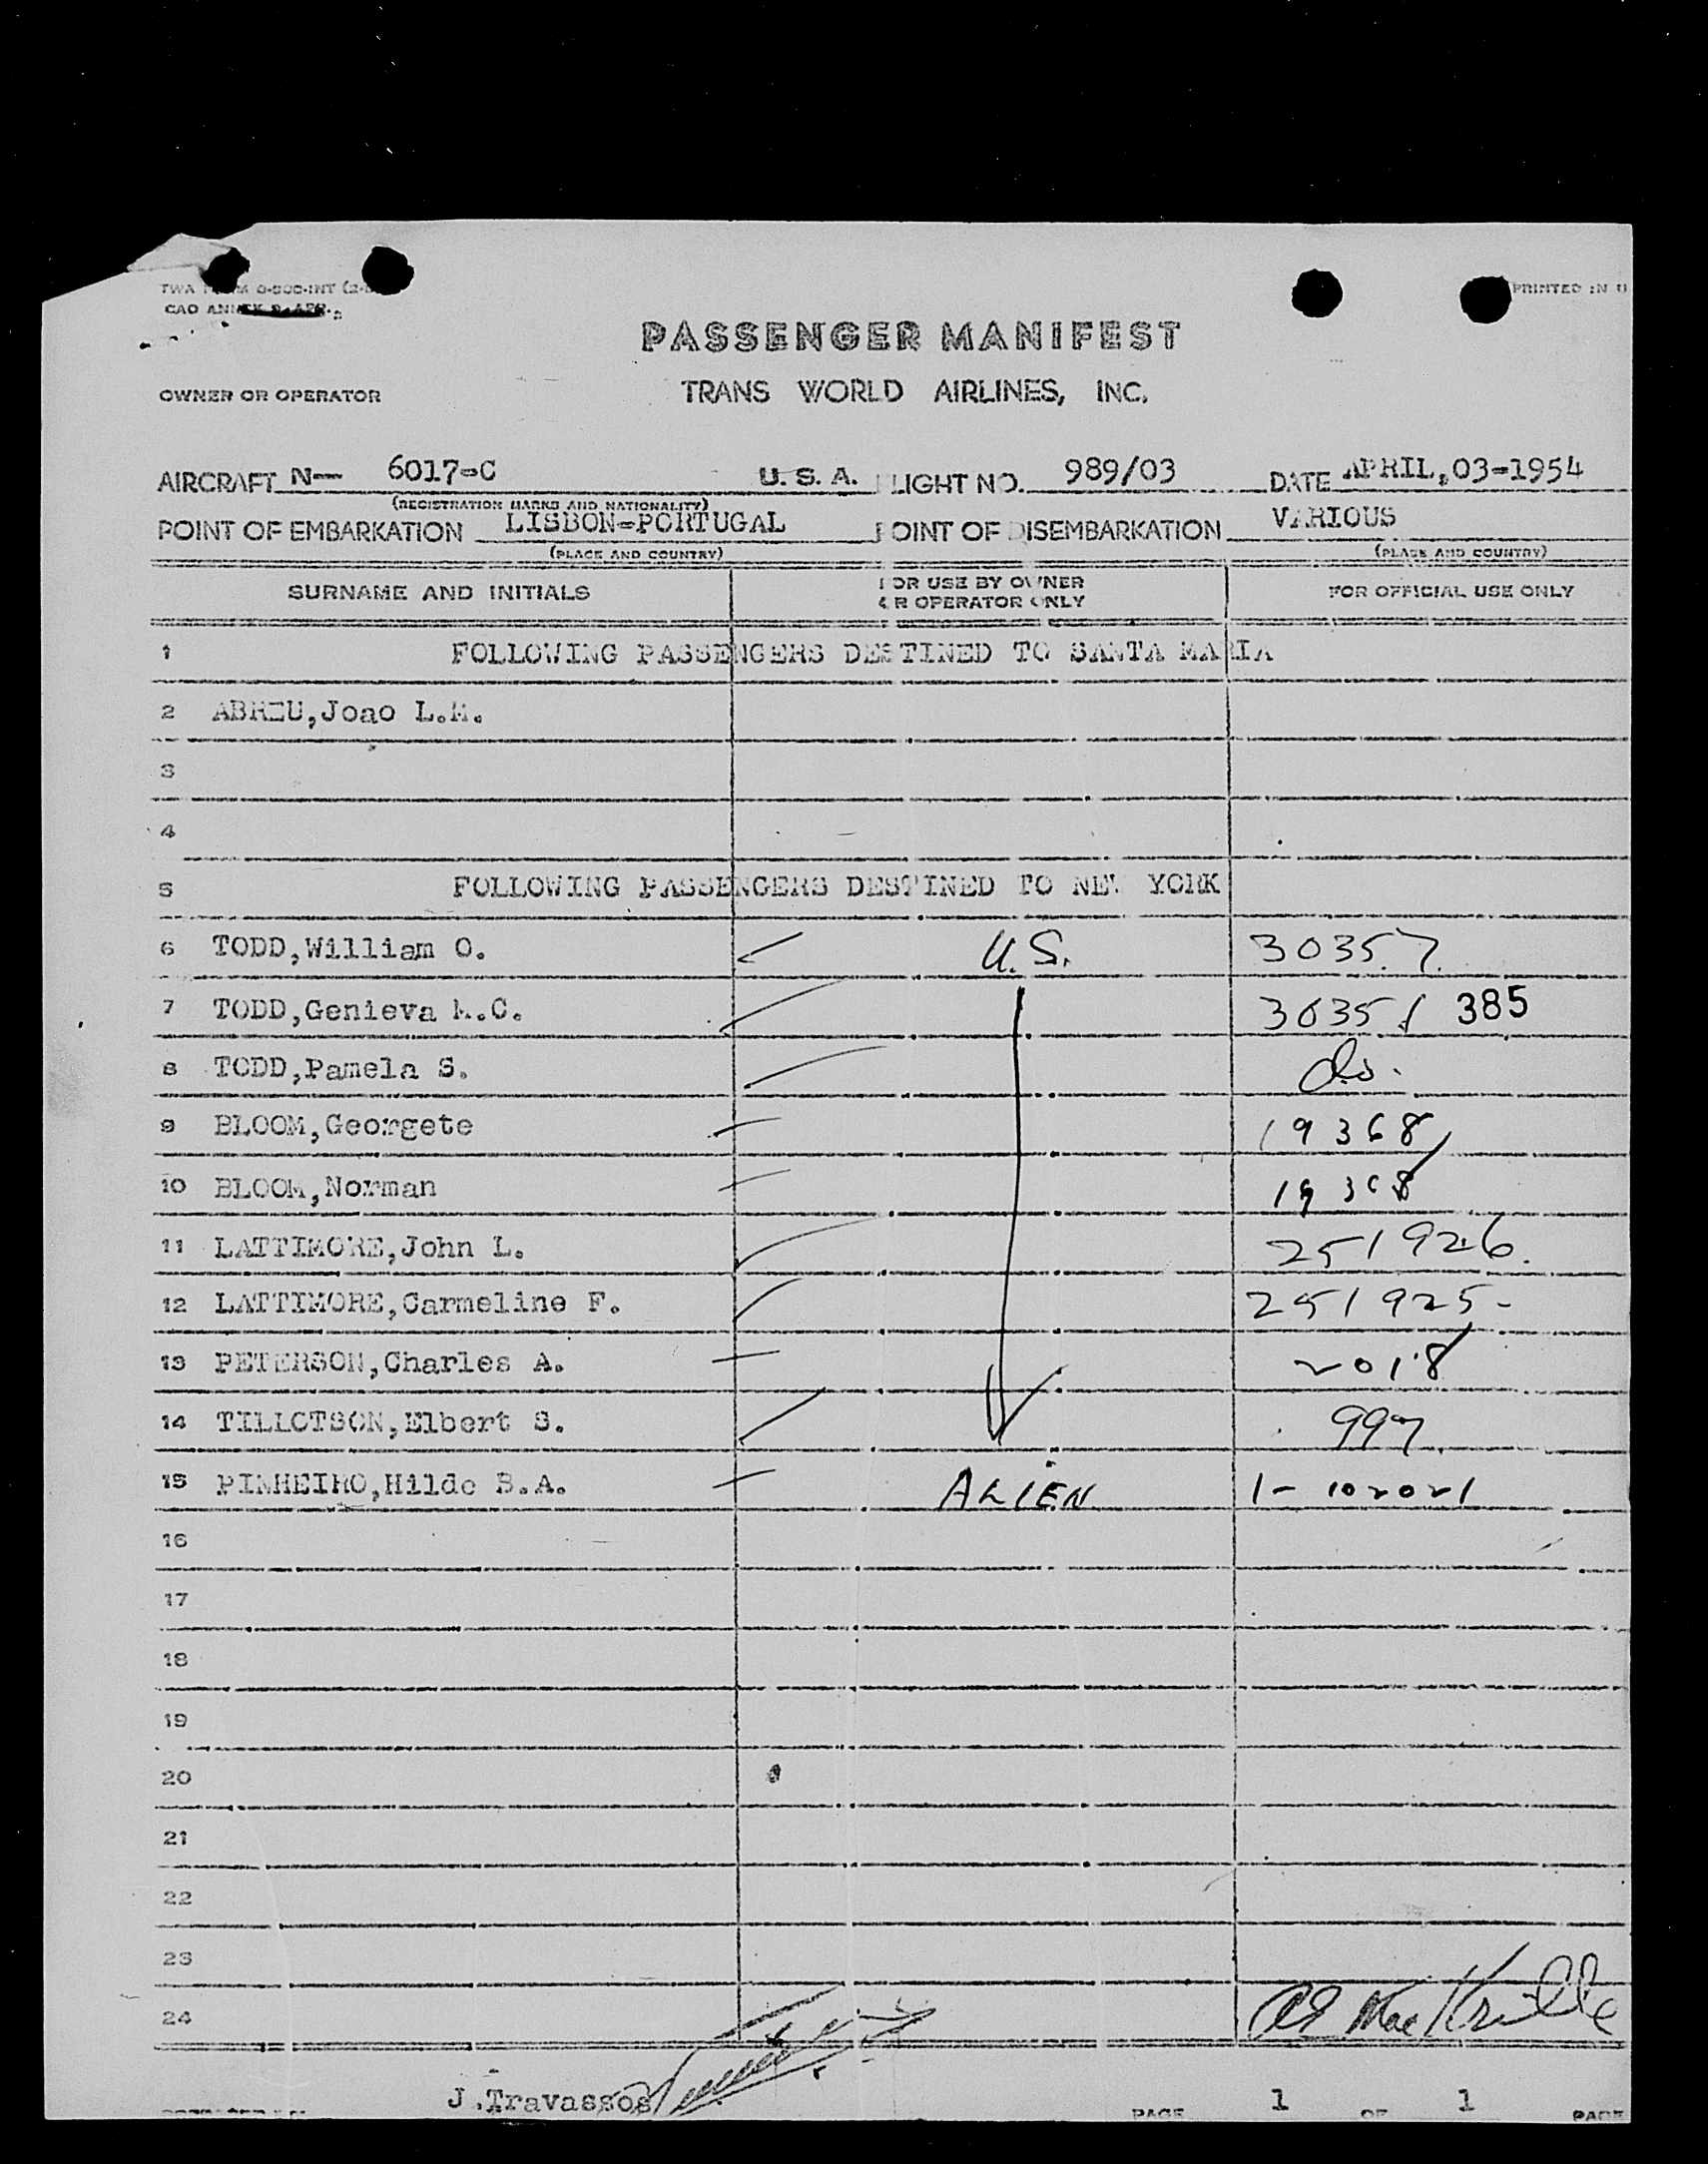 TWA
CAO
PRINTED IN U
PASSENGER MANIFEST
OWNER OR OPERATOR TRANS WORLD AIRLINES, INC.
AIRCRAFT N— 6017-C U.S.A. FLIGHT NO. 989/03 DATE APRIL,03-1954
(REGISTRATION MARKS AND NATIONALITY)
POINT OF EMBARKATION LISBON-PORTUGAL POINT OF DISEMBARKATION VARIOUS
(PLACE AND COUNTRY) (PLACE AND COUNTRY)
SURNAME AND INITIALS FOR USE BY OWNER OR OPERATOR ONLY FOR OFFICIAL USE ONLY
1 FOLLOWING PASSENGERS DESTINED TO SANTA MARIA
2 ABREU,Joao L.M.
3
4
5 FOLLOWING PASSENGERS DESTINED TO NEW YORK
6 TODD,William O. U.S. 30357
7 TODD,Genieva M.C. 30351 385
8 TODD,Pamela S. do.
9 BLOOM,Georgete 19368
10 BLOOM,Norman 19368
11 LATTIMORE,John L. 251926.
12 LATTIMORE,Carmeline F. 251925-
13 PETERSON,Charles A. 2018
14 TILLOTSON,Elbert S. 997
15 PINHEIRO,Hildo B.A. ALIEN 1- 102021
16
17
18
19
20
21
22
23
24
J.Travassos
PAGE 1 OF 1 PAGE